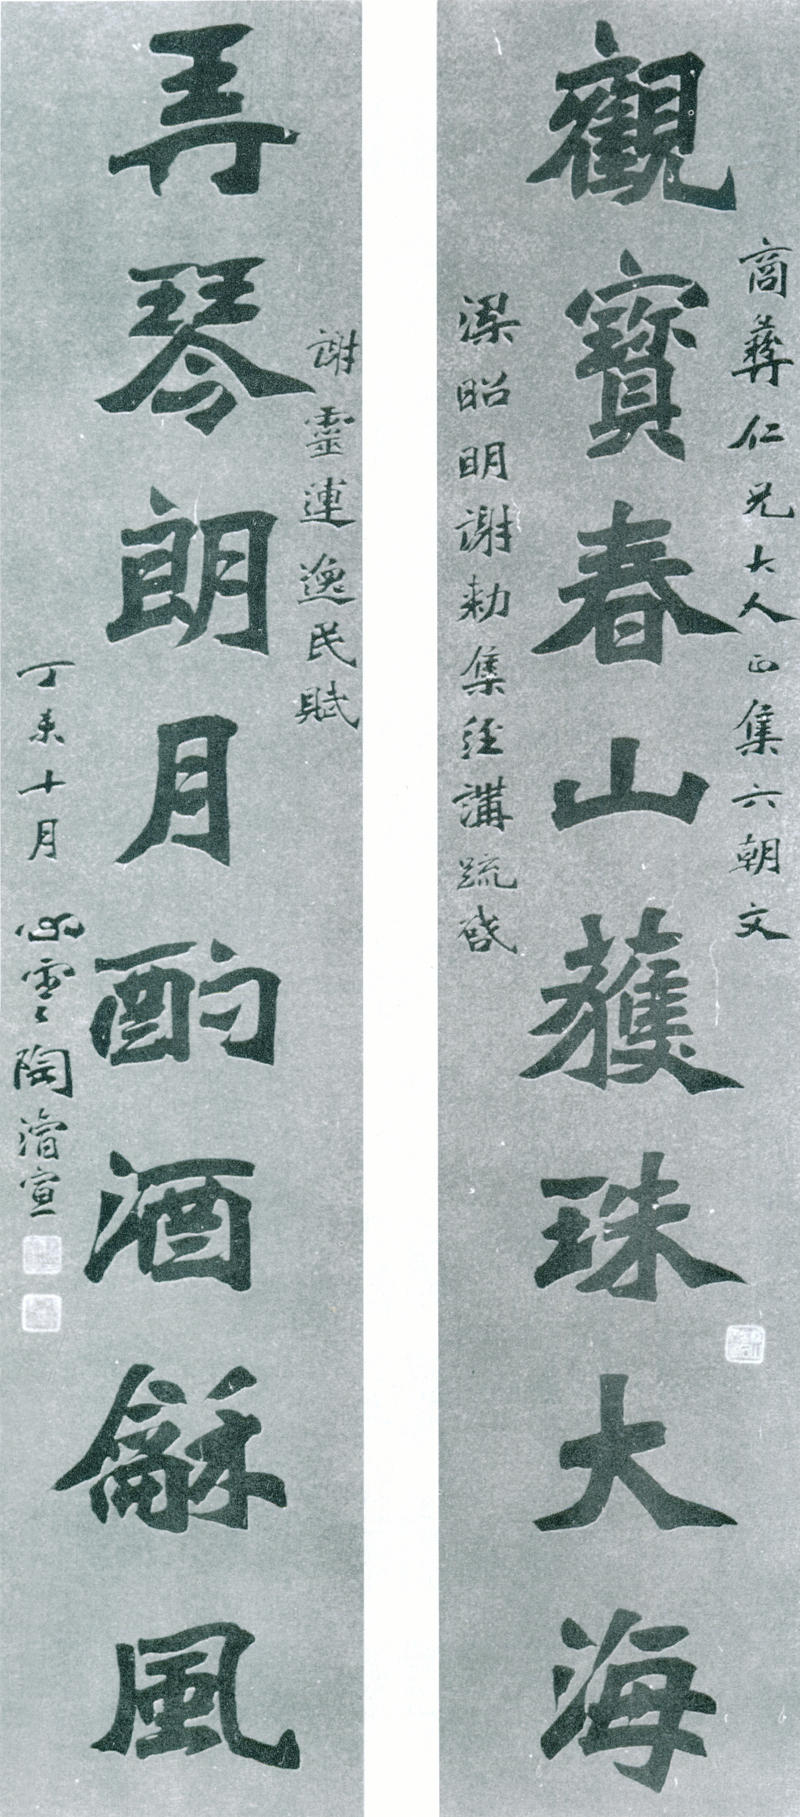 觀寶春山蒦珠大海
商彝仁兄大人正集六朝文
梁昭明謝勑集經講疏啓
弄琴朗月酌酒龢風
謝靈運逸民賦
丁未十月 心雲陶濬宣